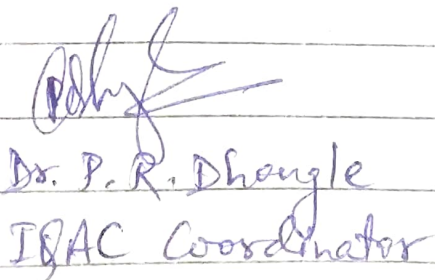 Dr. P. R. Dhongle
IQAC Coordinator